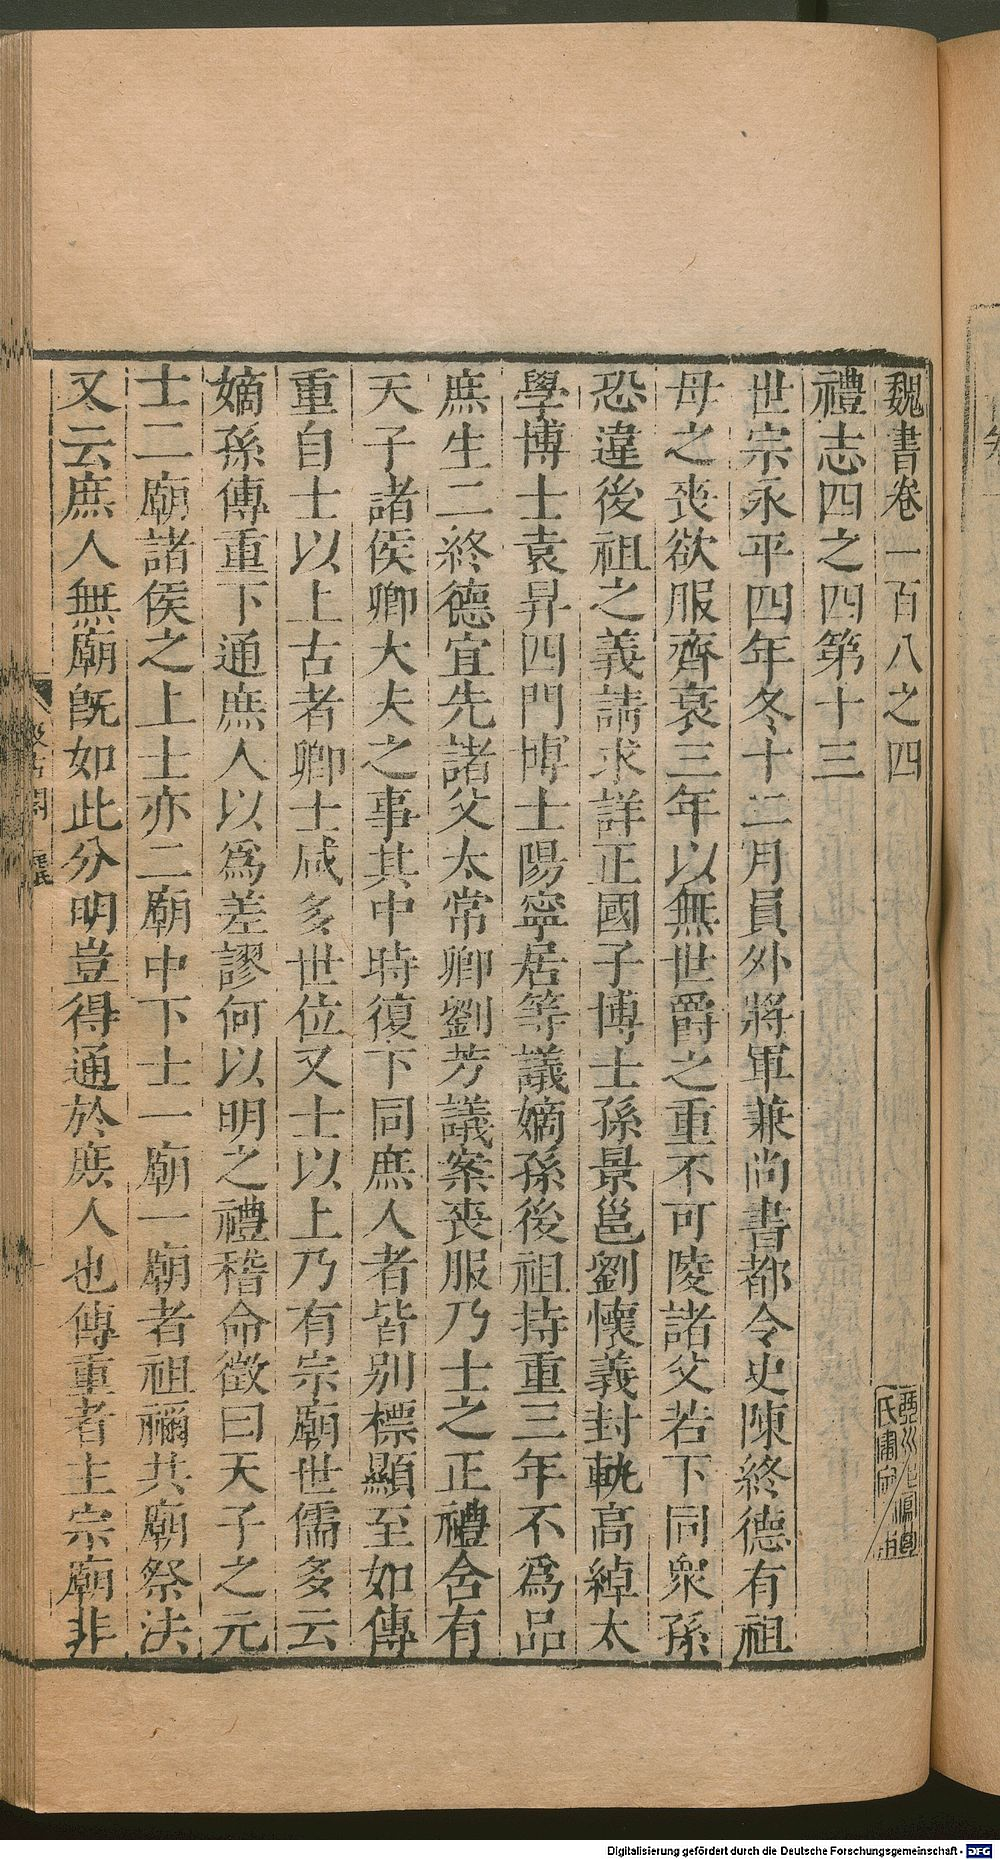 魏書卷一百八之四
禮志四之四第十三
世宗永平四年冬十二月員外將軍兼尚書都令史陳終德有祖
母之喪欲服齊衰三年以無世爵之重不可陵諸父若下同衆孫
恐違後祖之義請求詳正國子博士孫景邕劉懷義封軌高綽太
學博士袁昇四門博士陽寧居等議嫡孫後祖持重三年不爲品
庶生二終德宜先諸父太常卿劉芳議案喪服乃士之正禮含有
天子諸侯卿大夫之事其中時復下同庶人者皆別標顯至如傳
重自士以上古者卿士咸多世位又士以上乃有宗廟世儒多云
嫡孫傳重下通庶人以爲差謬何以明之禮稽命徵曰天子之元
士二廟諸侯之上士亦二廟中下士一廟一廟者祖禰共廟祭法
又云庶人無廟旣如此分明豈得通於庶人也傳重者主宗廟非
Digitalisierung gefördert durch die Deutsche Forschungsgemeinschaft - DFG